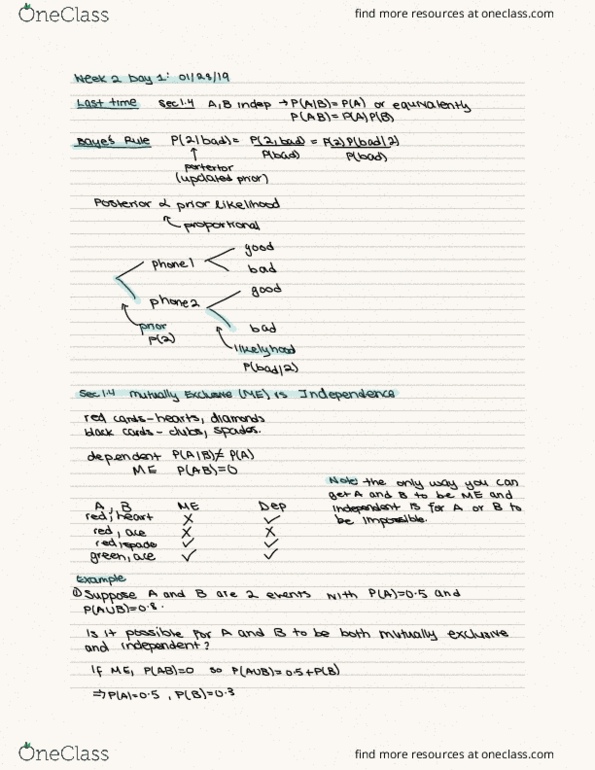 OneClass
find more resources at oneclass.com
Week 2 Day 1: 01/28/19
Last time Sec 1.4 A, B indep → P(A|B)=P(A) or equivalently
P(AB)=P(A)P(B)
Bayes Rule P(2|bad)= P(2,bad)/P(bad) = P(2)P(bad|2)/P(bad)
↑
posterior
(updated prior)
Posterior ∝ prior likelihood
proportional
good
phone1
bad
good
phone2
bad
prior
P(2)
likelyhood
P(bad|2)
Sec 1.4 Mutually Exclusive (ME) vs Independence
red cards - hearts, diamonds
black cards - clubs, spades.
dependent P(A|B)≠P(A)
ME P(AB)=0
Note: the only way you can
get A and B to be ME and
independent is for A or B to
be impossible.
A, B ME Dep
red, heart X ✓
red, ace X X
red, spade ✓ ✓
green, ace ✓ ✓
Example
① Suppose A and B are 2 events with P(A)=0.5 and
P(AUB)=0.8.
Is it possible for A and B to be both mutually exclusive
and independent?
If ME, P(AB)=0 so P(AUB)=0.5+P(B)
⇒ P(A)=0.5, P(B)=0.3
OneClass
find more resources at oneclass.com